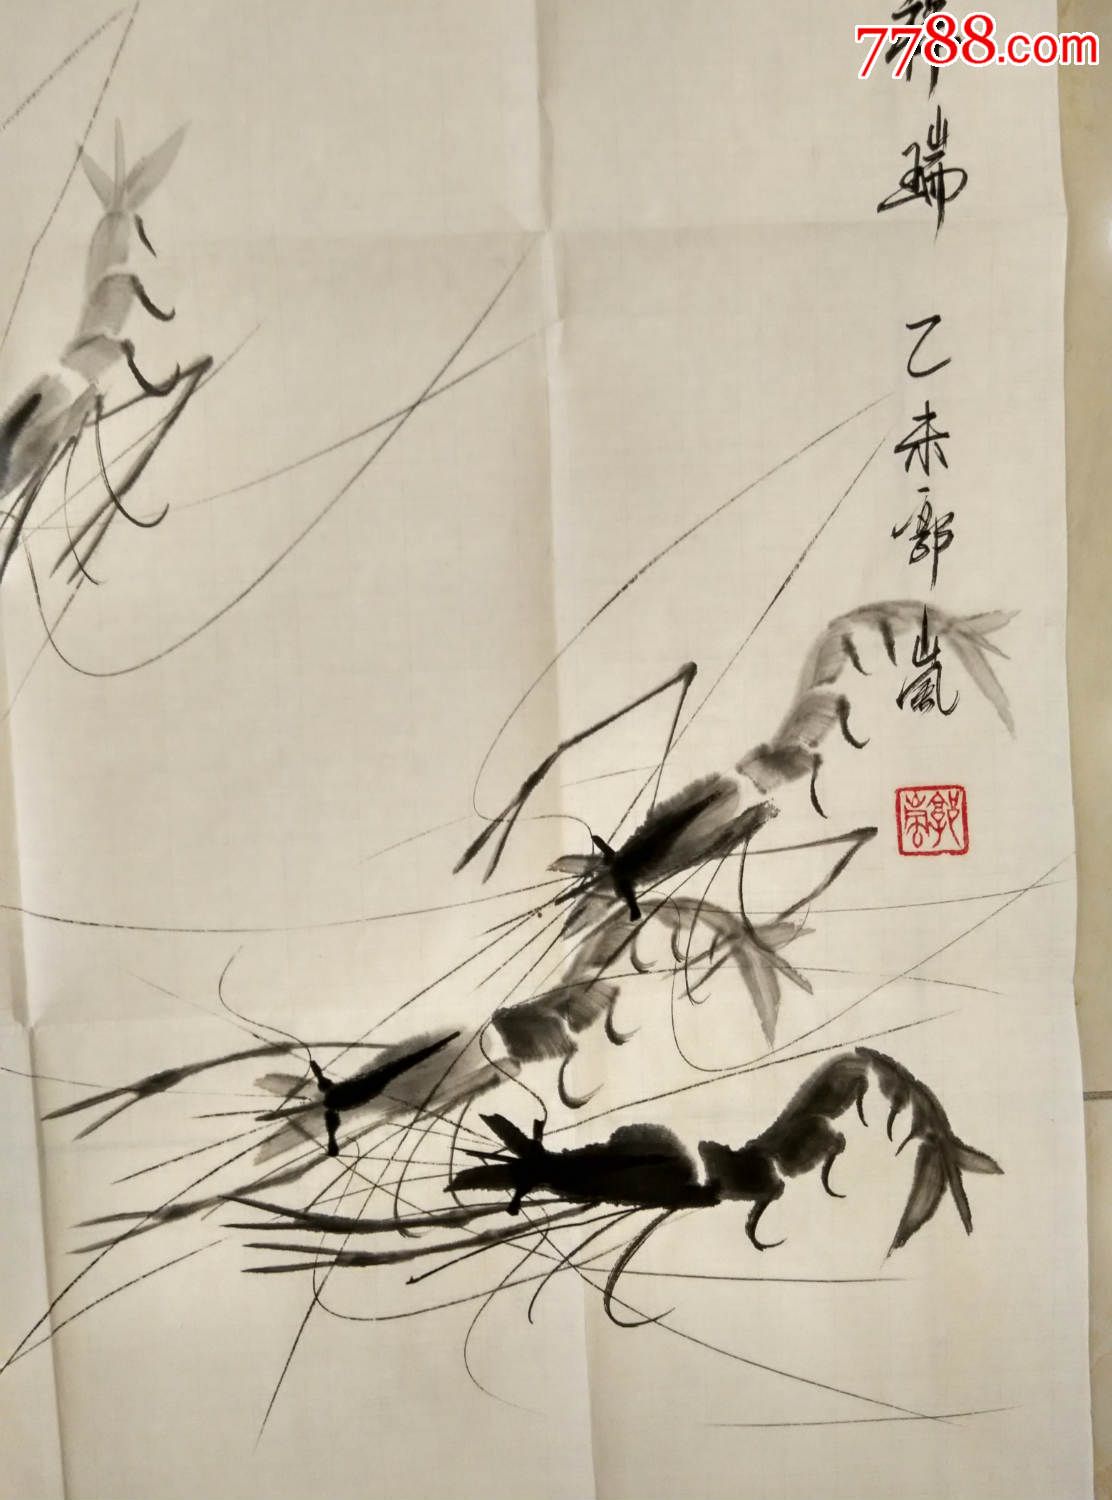 7788.com
祥瑞 乙未 郭嵐
郭嵐